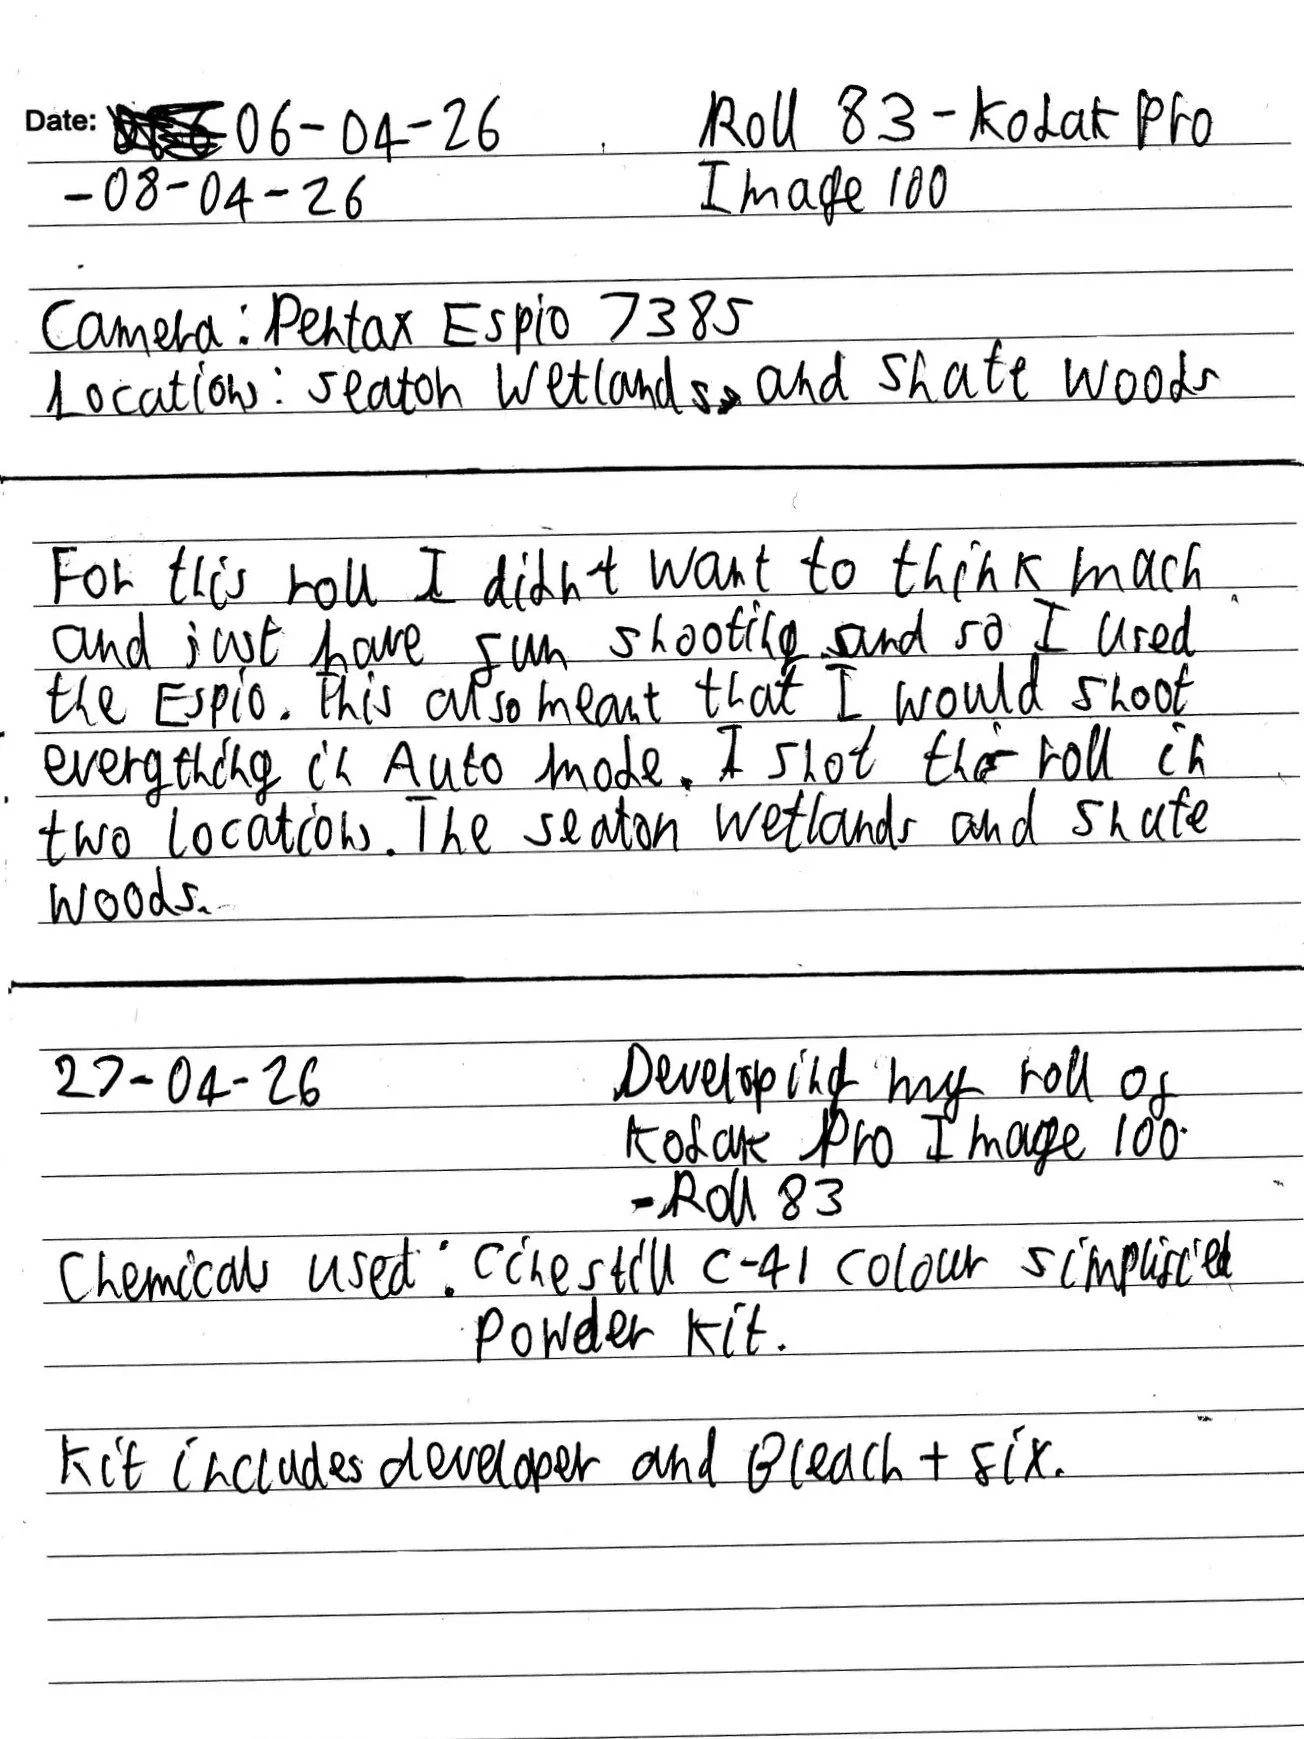 Date: 06-04-26 Roll 83 - Kodak Pro
-08-04-26 Image 100
Camera: Pentax Espio 738S
Locations: Seaton Wetlands, and Shute Woods
For this roll I didn't want to think much
and just have fun shooting and so I used
the Espio. This also meant that I would shoot
everything in Auto mode. I shot the roll in
two locations. The Seaton Wetlands and Shute
Woods.
27-04-26 Developing my roll of
Kodak Pro Image 100.
- Roll 83
Chemicals used: Cinestill C-41 colour simplified
Powder Kit.
Kit includes developer and Bleach + fix.